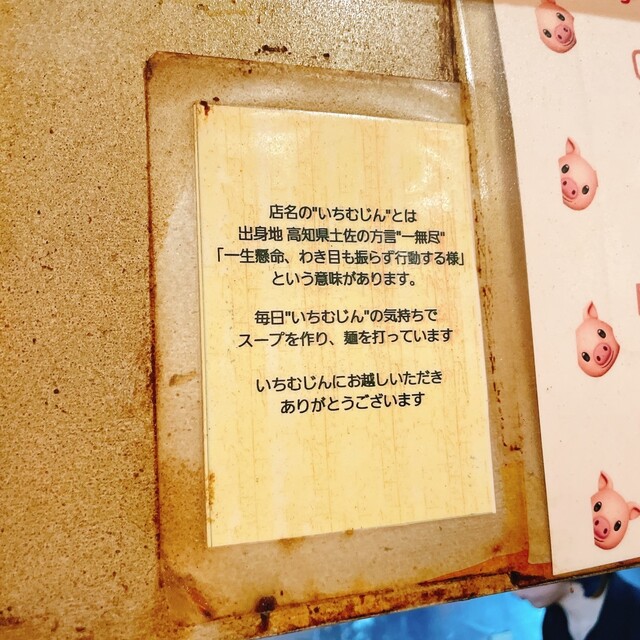 店名の"いちむじん"とは
出身地 高知県土佐の方言"一無尽"
「一生懸命、わき目も振らず行動する様」
という意味があります。
毎日"いちむじん"の気持ちで
スープを作り、麺を打っています
いちむじんにお越しいただき
ありがとうございます